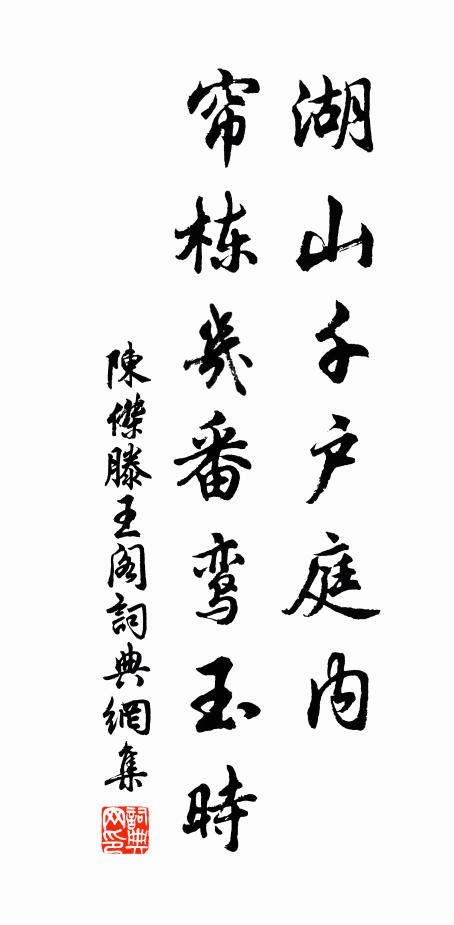 湖山千户庭内
帘栋幾番鸾玉時
陳傑滕王阁詞典網集
詞典网印